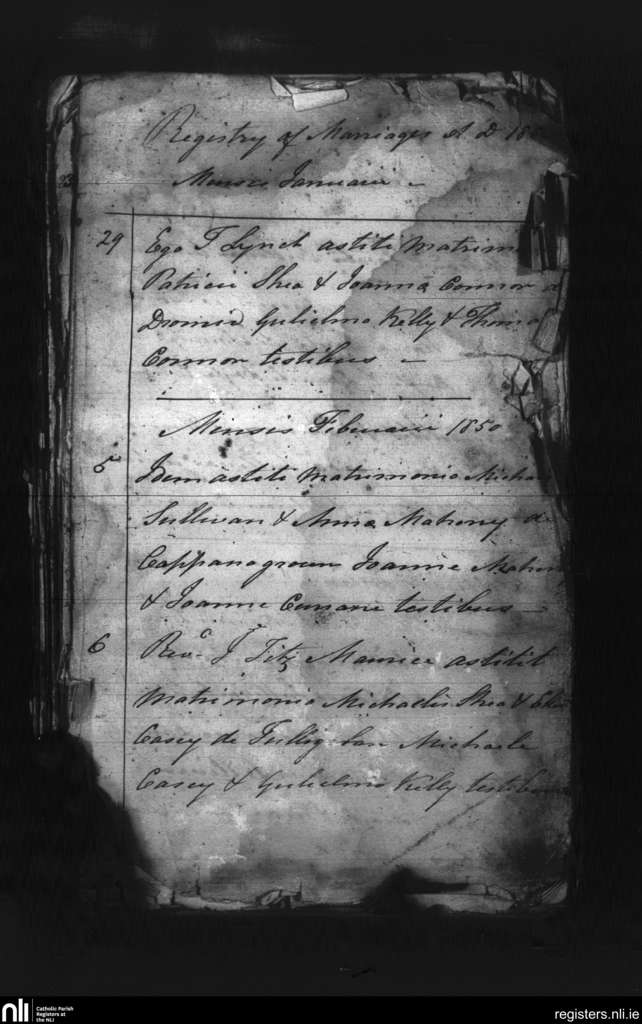 Registry of Marriages A D 18
Mensis Januarii
29 Ego T Lynch astiti matrim
Patricii Shea & Joanna Connor
Dromid Gulielmo Kelly & Thoma
Connor testibus
Mensis Februarii 1850
5 Idem astiti matrimonio Micha
Sullivan & Anna Mahony de
Cappanagroun Joanne Mahon
& Joanne testibus
6 Revd J Fitz Maurice astitit
matrimonio Michaelis Shea &
Casey de Michaele
Casey & Gulielmo Kelly testibus
nli
Catholic Parish
Registers at
the NLI
registers.nli.ie